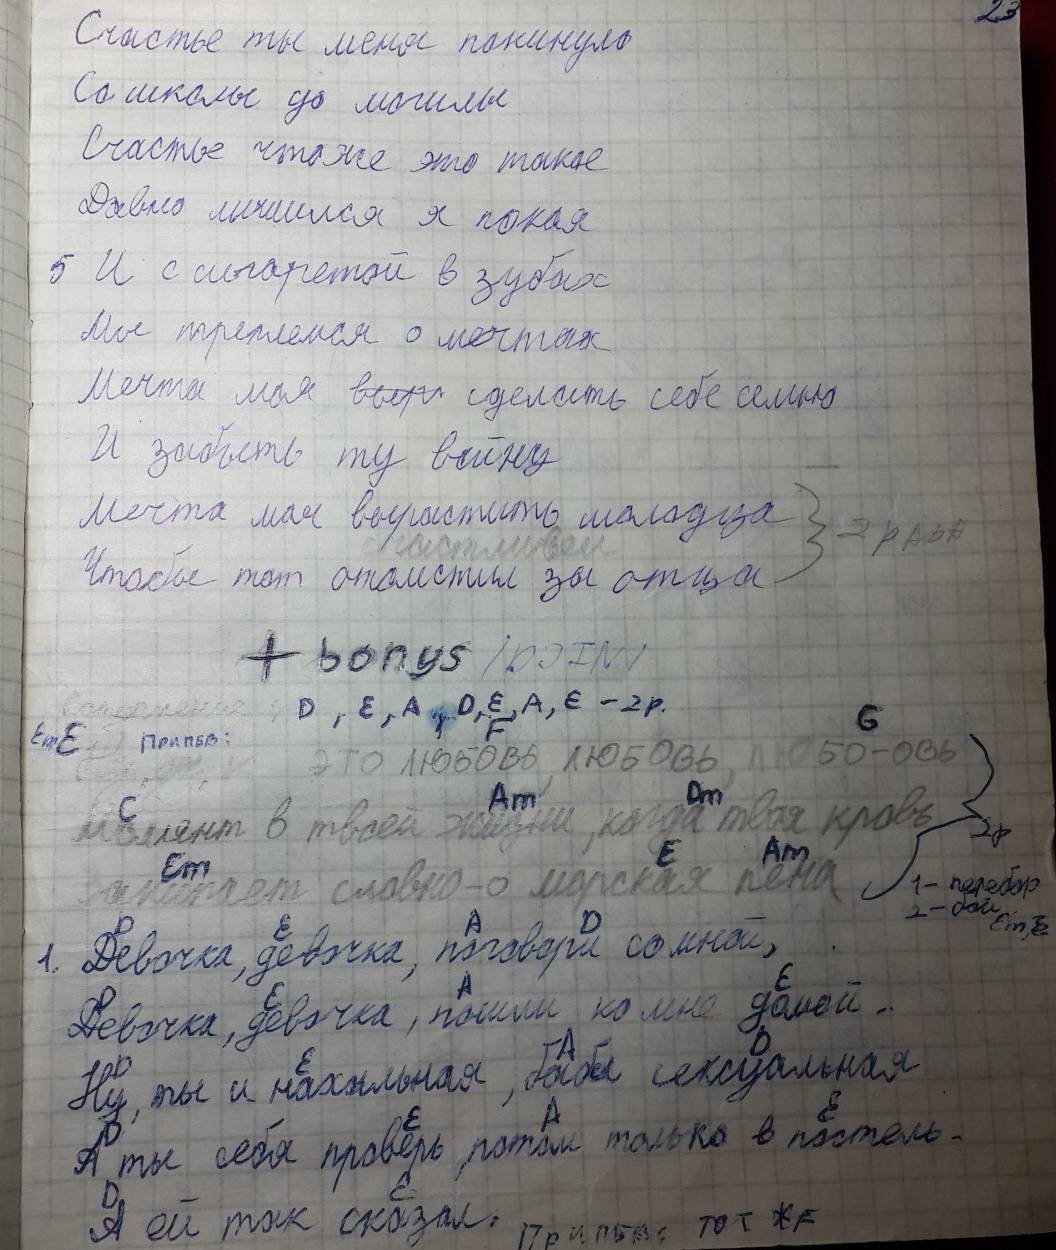 23
Счастье ты меня покинуло
Со школы до могилы
Счастье чтоже это такое
Давно личшился я покоя
5 И с сигаретой в зубах
Мы треплемся о мечтах
Мечта моя сделать себе семью
И забыть ту войну
Мечта моя вырастить молодца
счастливей
Чтобы тот отомстил за отца
2 раза
+ bonys
D, E, A, D, E, A, E - 2р.
F
Em E Припев: G
ЭТО ЛЮБОВЬ, ЛЮБОВЬ, ЛЮБО-ОВЬ
C Am Dm
Момент в твоей жизни, когда твоя кровь
2р
Em E Am
Закипает словно-о морская пена
1- перебор
2- бой
Em, E
D E A D
1. Девочка, девочка, поговори со мной,
D E A E
Девочка, девочка, пошли ко мне домой..
D E A D
Ну, ты и нахальная, баба сексуальная
D E A E
А ты себя проверь, потом только в постель.
D E
А ей так сказал.
Припев: тот же